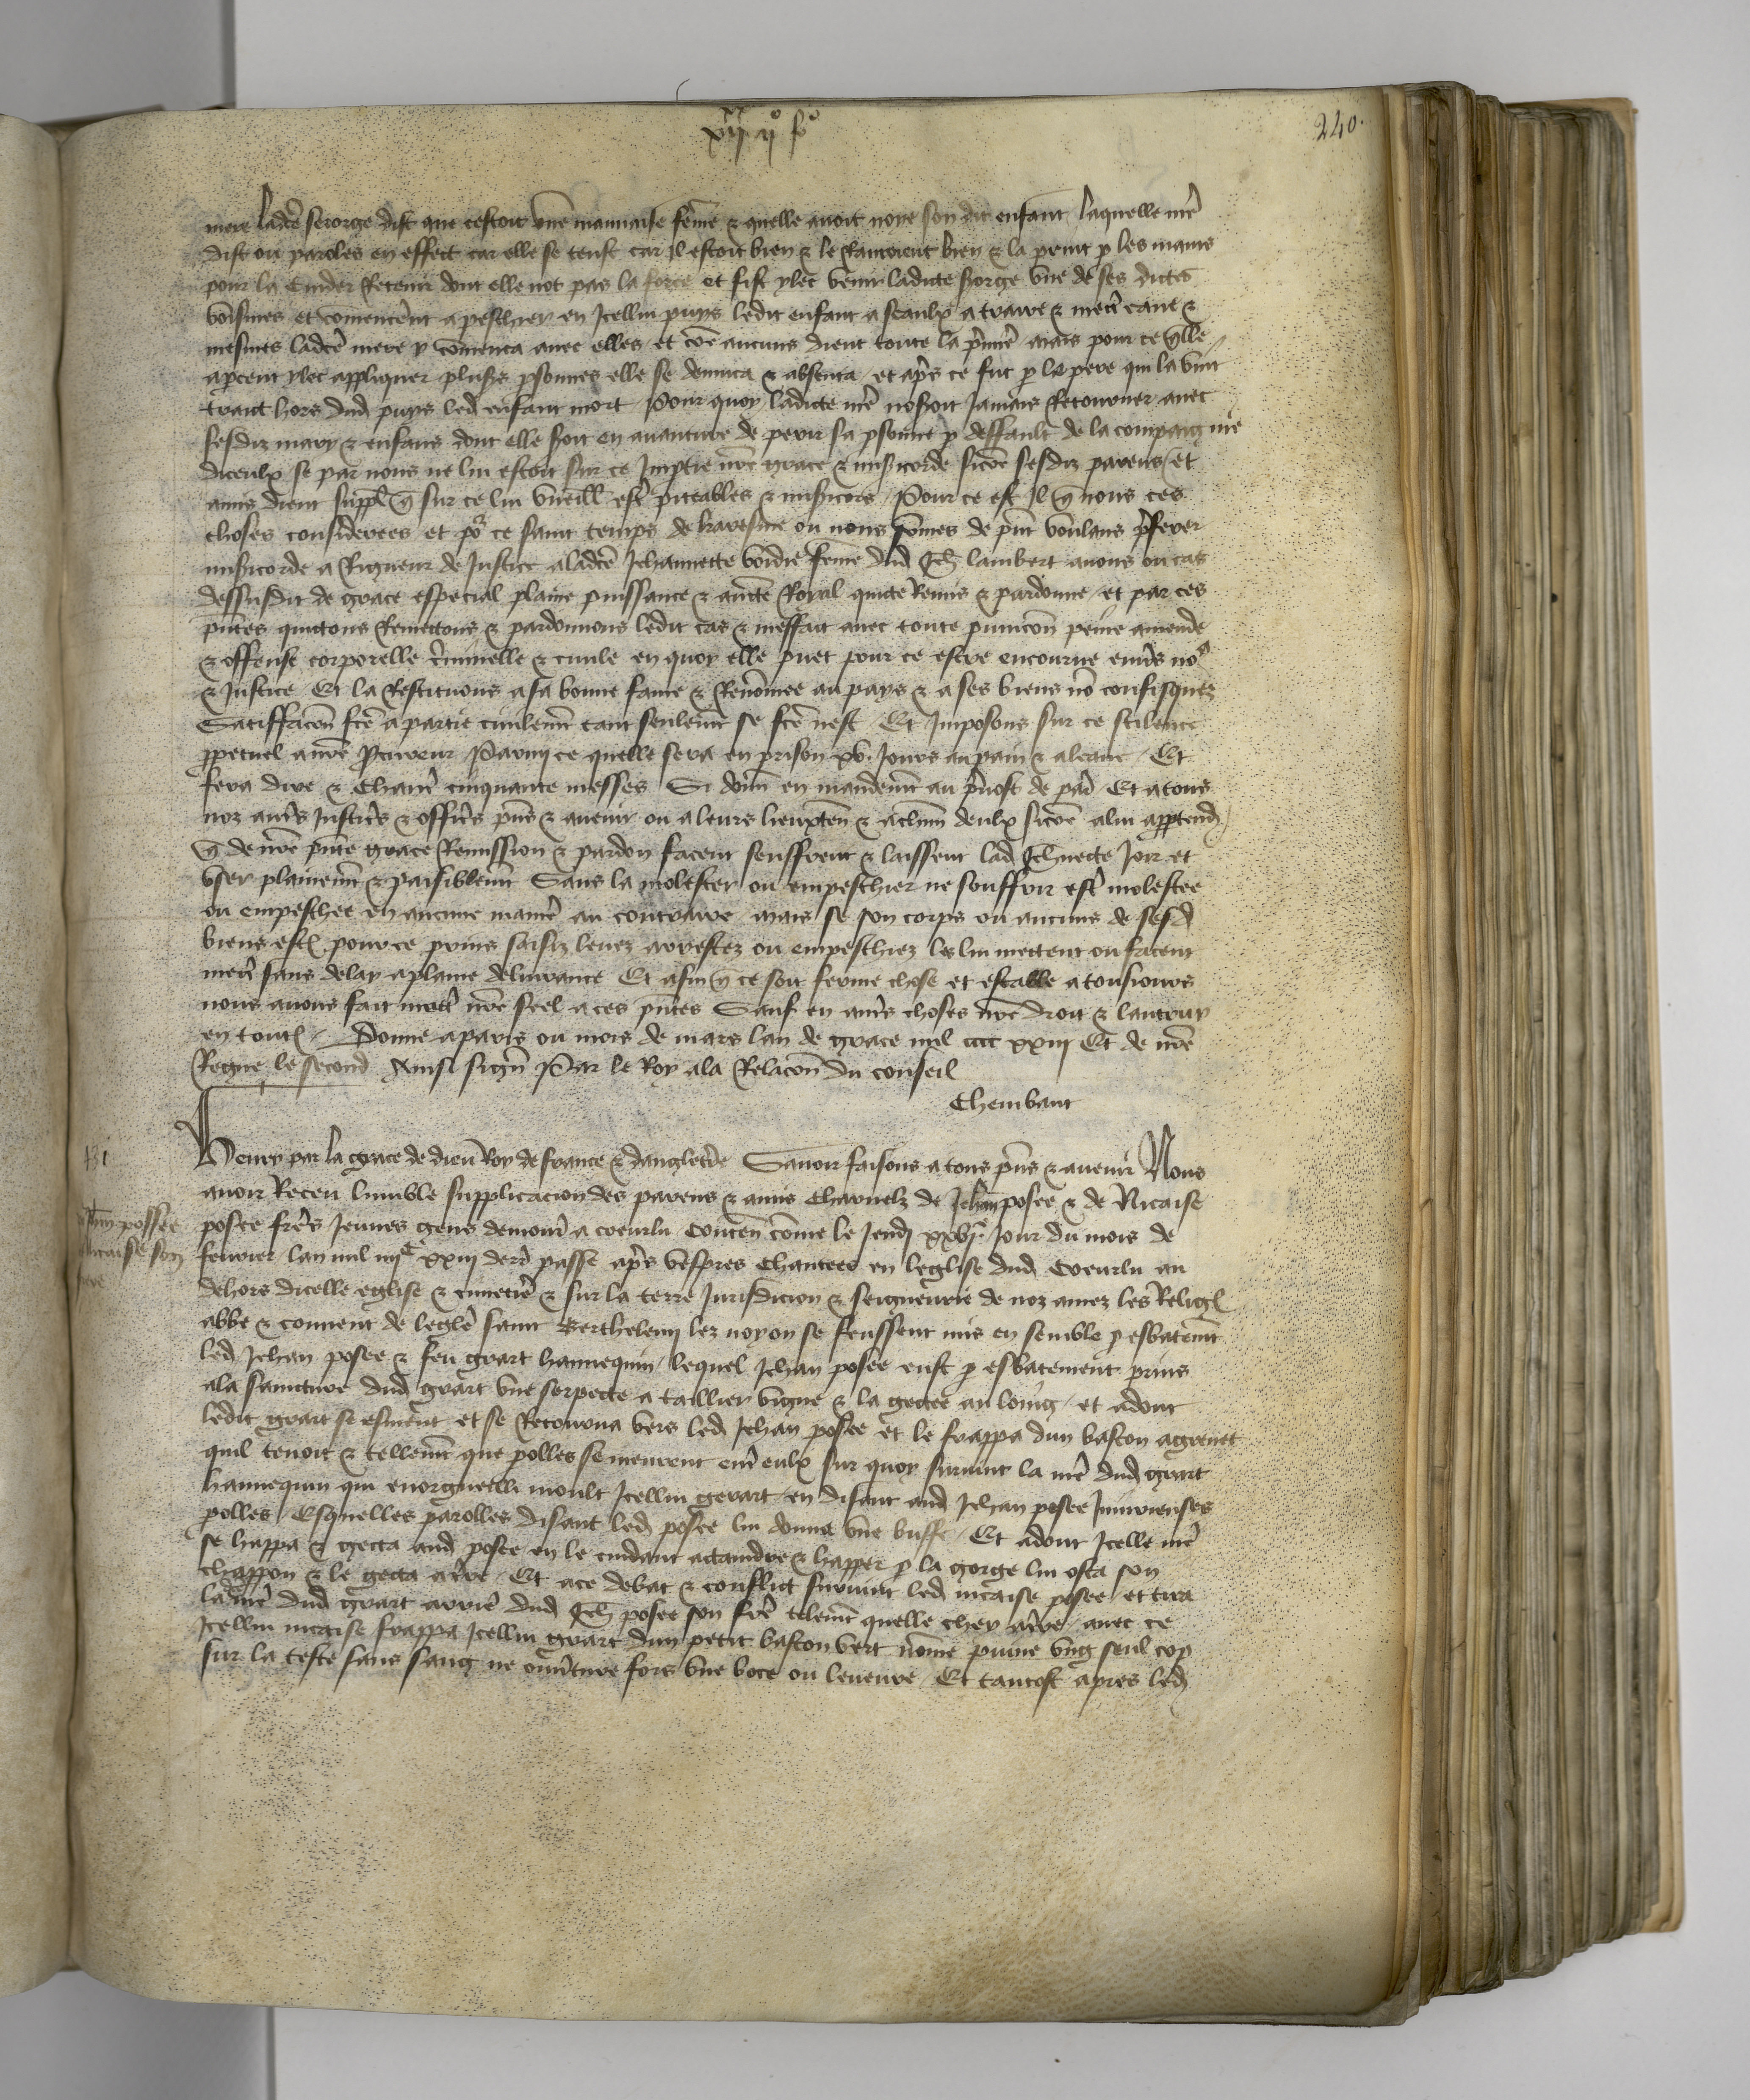 240.
mere ladcē serorge dist que cestoit vne mauuaise feme & quelle auoit noye son dit enfant laquelle mē
dist ou paroles en effect car elle se teust car Il estoit bien & le sauoient bien & la print p les mains
pour la cuider Retenir dont elle not pas la force et fist ylec venir ladicte serorge vne de ses dictes
voisines et comencerēt a peschier en Icellui puys ledit enfant a seaulx a traire & mectr eaue &
mesmes ladcē mere y comenca auec elles et coē aucuns dient toute la p̄mierē mais pour ce q̄lle
apcent ylec appliquer plusrs psonnes elle se demuca & absenta et ap̄s ce fut p le pere qui la vint
trait hors dud puys led enfant mort Pour quoy ladicte mē noseroit Jamais Retourner auec
sesdiz mary & enfans dont elle seroit en auanture de perir sa psonne p deffault de la compaignie
diceulx se par nous ne lui estoit sur ce Imptie nrē grace & misicorde sicōe sesdiz parens et
amis dient suppl q̄ sur ce lui vueill estr̄ piteables & misicors Pour ce est Il q̄ nous ces
choses considerees et por ce saint temps de karesme ou nous somes de pn̄t voulans p̄ferer
misicorde a Rigueur de Justice a ladcē Jehannette voidie feme dud Jeh lambert auons ou cas
dessusdit de grace especial plaine puissance & auctē Royal quicte Remis & pardonne et par ces
pn̄tes quictons Remettons & pardonnons ledit cas & meffait auec toute punicon peine amende
& offense corporelle c̄iminelle & ciuile en quoy elle puet pour ce estre encourue enūs nos
& Justice Et la Restituons a sa bonne fame & Renomee au pays & a ses biens nō confisquez
Satiffacon fcē a partie ciuilemēt tant seulemēt se fcē nest Et Imposons sur ce scilence
ppetuel a nrē pcureur Parmy ce quelle sera en prison xv. Jours au pain & a leaue Et
fera dire & Chantr̄ cinquante messes Si donn en mandemēt au p̄uost de par̄ Et a tous
noz autr̄s Justic̄rs & offic̄rs pn̄s & auenir ou a leurs lieuxten & a chūn deulx sicōe a lui apptend
q̄ de nrē pn̄te grace Remission & pardon facent seuffrent & laissent lad Jehnecte Joir et
vser plainemēt & paisiblemēt Sans la molester ou empeschier ne souffrir estr̄ molestee
ou empeschee en aucune manier̄ au contraire mais se son corps ou aucuns de sesd
biens est pour ce prins saisiz leuez arrestez ou empeschiez les lui mettent ou facent
mectr̄ sans delay a plaine deliurance Et afin q̄ ce soit ferme chose et estable a tousiours
nous auons fait mectr̄ nrē seel a ces pn̄tes Sauf en autr̄s choses nrē droit & lautruy
en tout Donne a paris ou mois de mars lan de grace mil cccc xxiij Et de nrē
Regne le second Ainsi sign Par le Roy a la Relacon du conseil
Chembaut
Henry par la grace de dieu Roy de france & danglet̄re Sauoir faisons a tous pn̄s & auenir Nous
auoir Receu lumble supplicacion des parens & amis Charnelz de Jehan posee & de Nicaise
posee frēs Jeunes gens demour̄ a coeurlu Conten cōme le Jeudj xxvje Jour du mois de
feurier lan mil iiijc xxiij derr̄ passe ap̄s vespres Chantees en leglise dud Coeurlu au
dehors dicelle eglise & cimetier̄ & sur la terre Jurisdicion & seigneurie de noz amez les Relig
abbe & conuent de leglē saint Berthelemj lez noyon se feussent mis en semble p esbatemēt
led Jehan posee & feu grart hannequin lequel Jehan posee eust p esbatement prins
a la saincture dud grart vne serpecte a taillier vigne & la gectee au loing et adont
ledit grart se esment et se Retourna vers led Jehan posee et le frappa dun baston a gernet
quil tenoit & tellemēt que polles se meurent entr̄ eulx sur quoy suruint la mē dud grart
hannequin qui enorguelli moult Icellui gerart en disant aud Jehan posee Iniurieuses
polles Esquelles parolles disant led posee lui donna vne buffe Et adont Icelle mē
se happa & gecta aud posee en le cuidant actaindre & happer p la gorge lui osta son
chappon & le gecta a tr̄re Et a ce debat & conflict suruint led nicaise posee et tira
la mē dud grart arrier̄ dud Jeh posee son frē telemēt quelle chey a tr̄re auec ce
Icellui nicaise frappa Icellui grart dun petit baston vert nōme puine vng seul cop
sur la teste sans sang ne ouuertur̄e fors vne boce ou leueure Et tantost apres led
131
posee
nicaise son